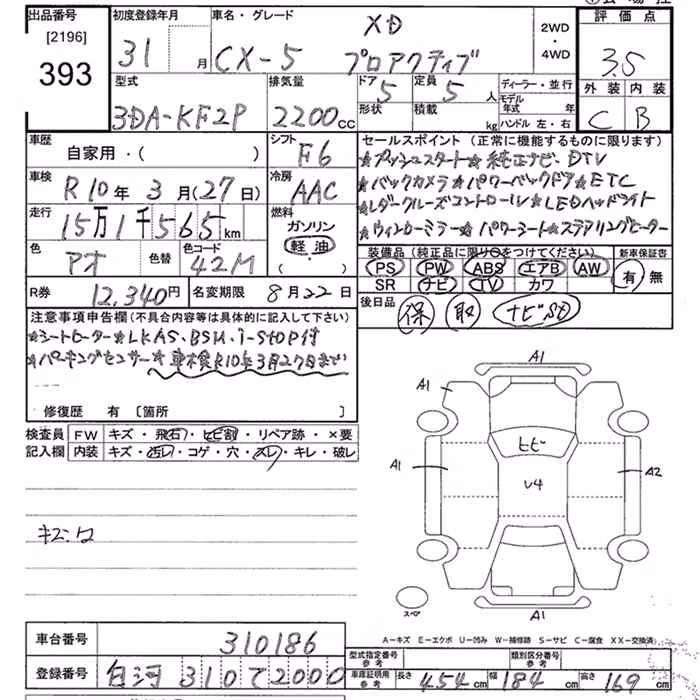 出品番号 初度登録年月 車名・グレード XD 2WD・4WD 評価点
[2196] 393 31 月 CX-5 プロアクティブ 3.5
型式 排気量 ドア 5 定員 5 人 ディーラー・並行 外装 内装
3DA-KF2P 2200 cc 形状 積載 kg モデル年式 年 ハンドル 左・右 C B
車歴 自家用・( ) シフト F6
セールスポイント (正常に機能するものに限ります)
★プッシュスタート★純正ナビ、DTV
車検 R10年 3月(27日) 冷房 AAC
★バックカメラ★パワーバックドア★ETC
★レダークルーズコントロール★LEDヘッドライト
走行 15万1千565km 燃料 ガソリン 軽油 ・( )
★ウィンカーミラー★パワーシート★ステアリングヒーター
色 アオ 色替 色コード 42M
装備品 (純正品に限り○をつけてください) 新車保証書
PS PW ABS エアB AW 有 無
SR ナビ TV カワ
R券 12,340円 名変期限 8月22日
後日品 保 取 ナビSD
注意事項申告欄(不具合内容等は具体的に記入して下さい)
★シートヒーター★LKAS、BSM、i-STOP付
★パーキングセンサー★車検R10年3月27日まで
修復歴 有 [箇所 ]
検査員 FW キズ・飛石・ヒビ割・リペア跡・×要
記入欄 内装 キズ・汚レ・コゲ・穴・スレ・キレ・破レ
キズ・ワ
A1
A1
ヒビ
A1 A2
U4
スペア A1
A-キズ E-エクボ U-凹み W-補修跡 S-サビ C-腐食 XX-交換済
車台番号 310186
型式指定番号 参考 類別区分番号 参考
登録番号 白河 310 て 2000
車庫証明用 参考 長さ 454cm 幅 184cm 高さ 169cm